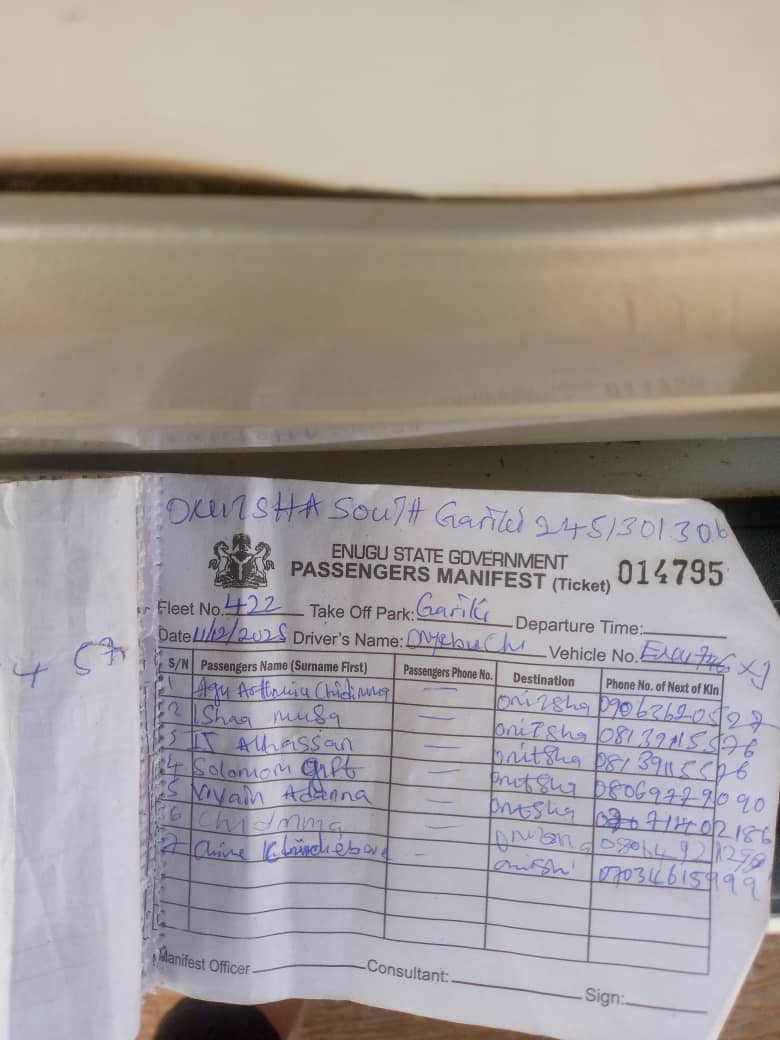 SOUTH Gariki 245/301306
ENUGU STATE GOVERNMENT
PASSENGERS MANIFEST (Ticket) 014795
Fleet No. 422 Take Off Park: Gariki Departure Time:
Date 11/12/2025 Driver's Name: Onyebuchi Vehicle No. XJ
S/N Passengers Name (Surname First) Passengers Phone No. Destination Phone No. of Next of Kin
1 Agu Chidimma — onitsha 09063620527
2 Ishaq musa — onitsha 08139115576
3 IJ Alhassan — onitsha 08139115576
4 Solomom Gift — onitsha 08069779090
5 Vivain Adanna — onitsha
6 Chidimma —
7 Chine — 07034615999
Manifest Officer Consultant: Sign:
4 57